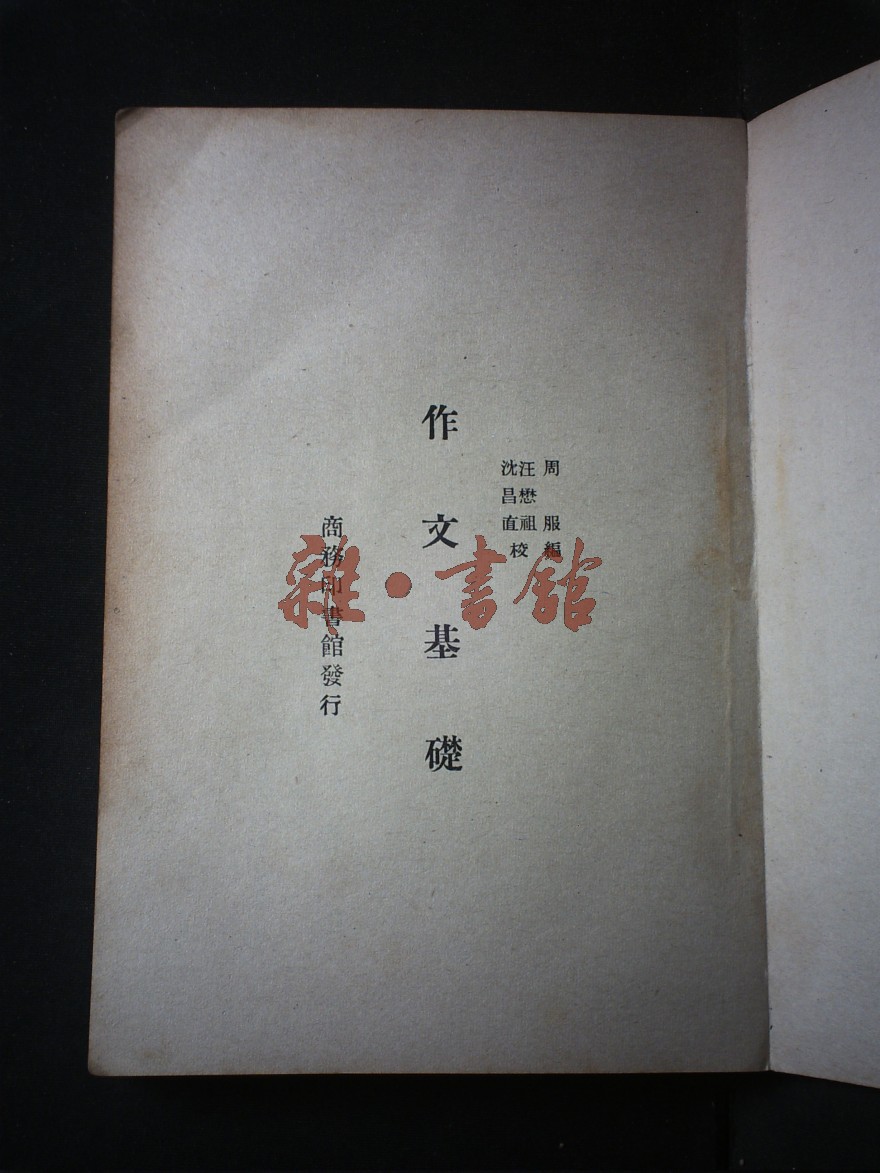 周服編
汪懋祖
沈昌直校
作文基礎
商務印書館發行
雜·書館